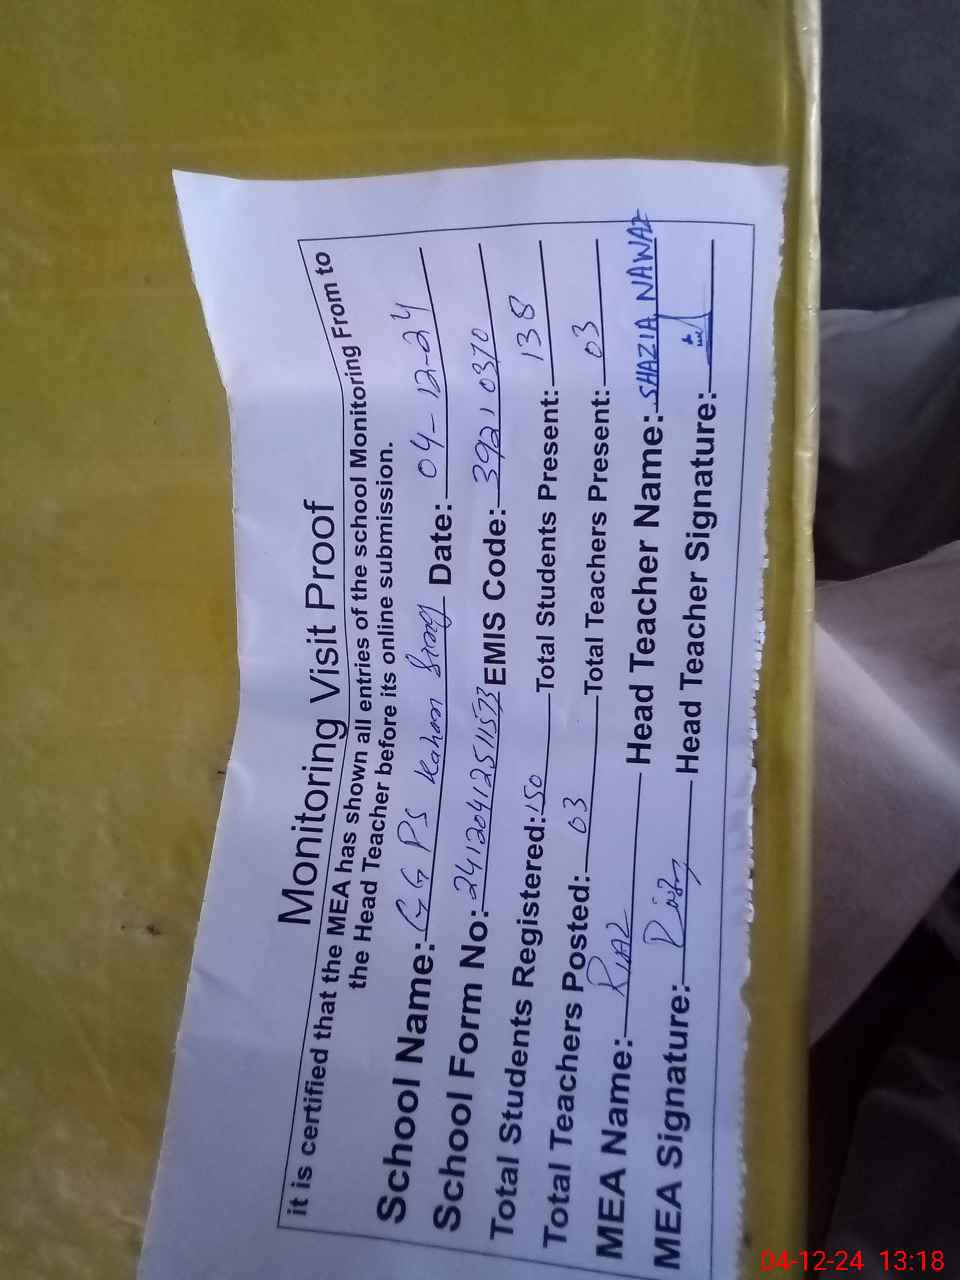 Monitoring Visit Proof
it is certified that the MEA has shown all entries of the school Monitoring From to
the Head Teacher before its online submission.
School Name: GGPS Kahan Date: 04-12-24
School Form No: 24120412511573 EMIS Code: 39210370
Total Students Registered: 150 Total Students Present: 138
Total Teachers Posted: 03 Total Teachers Present: 03
MEA Name: RIAZ Head Teacher Name: SHAZIA NAWAZ
MEA Signature: Riaz Head Teacher Signature:
04-12-24 13:18